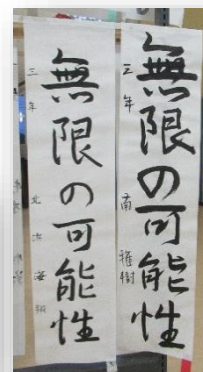 無限の可能性
三年 南 雅樹
無限の可能性
三年 北